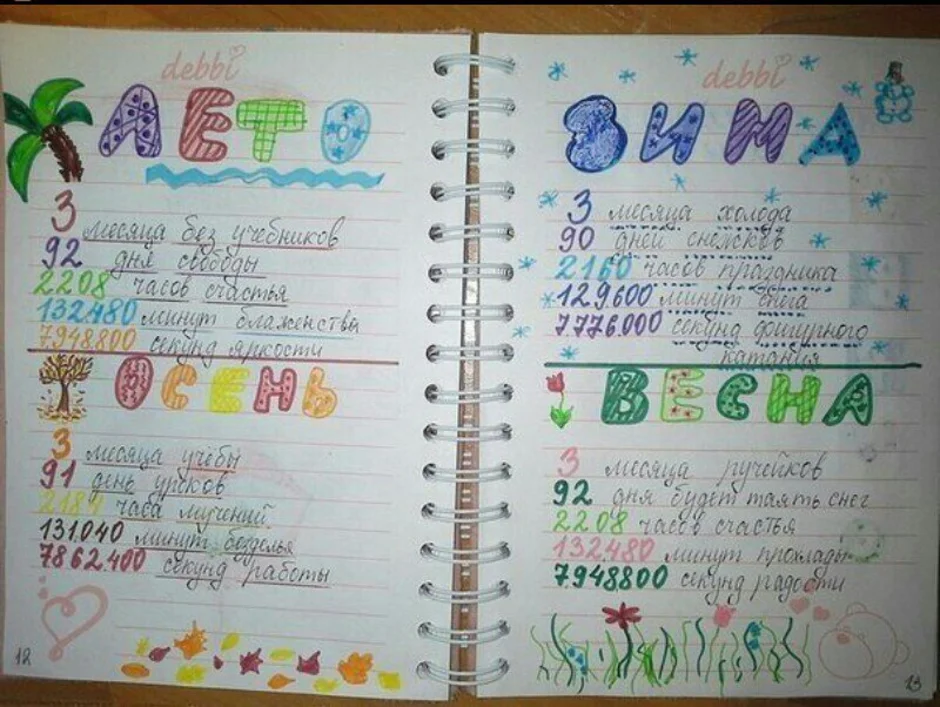 debbi
ЛЕТО
3 месяца без учебников
92 дня свободы
2208 часов счастья
132480 минут блаженствы
7948800 секунд яркости
ОСЕНЬ
3 месяца учёбы
91 день уроков
2184 часа мучений
131.040 минут безделья
7862.400 секунд работы
12
debbi
ЗИМА
3 месяца холода
90 дней снежков
2160 часов праздника
129600 минут снега
7776.000 секунд фигурного
катания
ВЕСНА
3 месяца ручейков
92 дня будет таять снег
2208 часов счастья
132.480 минут прохлады
7948800 секунд радости
13